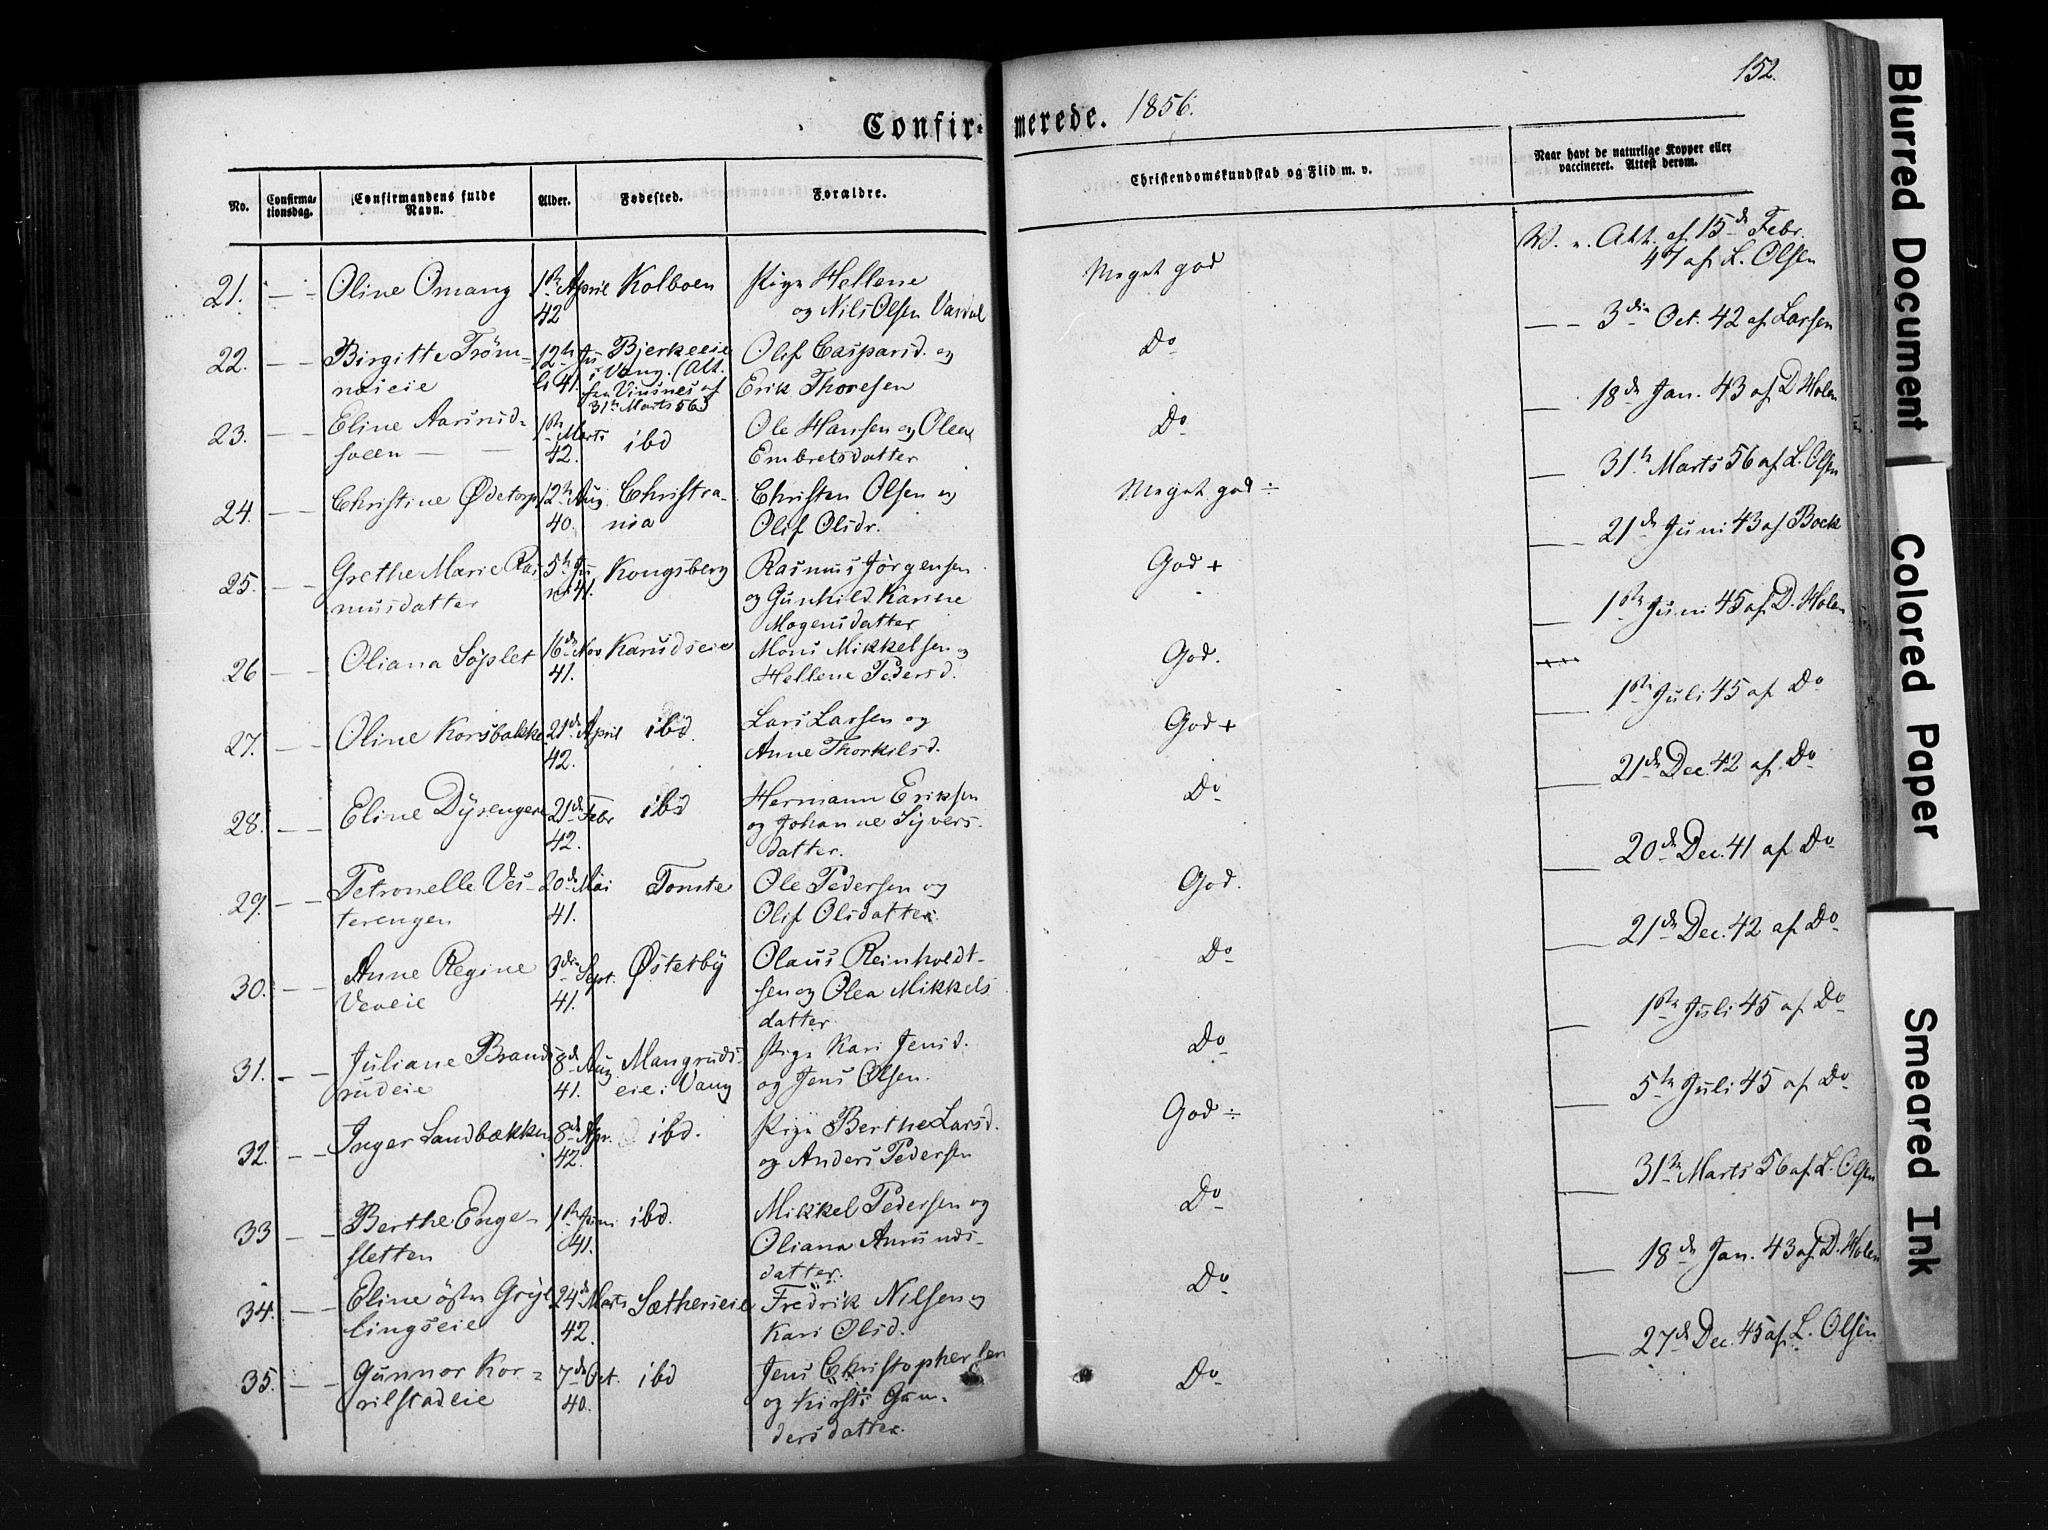 152.
Confir- merede. 1856.
No. Confirma-tionsdag. Confirmandens fulde Navn. Alder. Fødested. Forældre. Christendomskundskab og Flid m. v. Naar havt de naturlige Kopper eller vaccineret. Attest derom.
21. — — Oline Omang 1ste April Kolboen Pige Hellene Meget god V. n. Att. af 15de Febr.
42 og Nils Olsen Vardal 47 af L. Olsen
22. — — Birgitte Tröm- 12te Ju Bjerkeeie Olif Caspersd. og Do — — 3die Oct. 42 af Larsen
næieie li 41. i Vang. (Att. Erik Thoresen
fra Viusnes af
31te Marts 56)
23. — — Eline Aasrud- 1ste Marts ibd Ole Hansen og Olea Do — 18de Jan. 43 af D. Holen
soeen — — 42. Embretsdatter
24. — — Christine Ødetorp 12te Aug. Christia- Christen Olsen og Meget god ÷ — 31te Marts 56 af L. Olsen
40. nia Olif Olsdr.
25. — — Grethe Marie Ras 5te Ju Kongsberg Rasmus Jörgensen God + — 21de Juni 43 af Bock
musdatter ni 41. og Gunhild Karine
Mogensdatter
26 — — Oliana Söslet 16de Nov Karudseie Mons Mikkelsen og God. — 1ste Juni 45 af D. Holen
41. Hellene Pedersd.
27. — — Oline Korsbakke 21de April ibd. Lars Larsen og God + 1ste Juli 45 af Do
42. Anne Thorkelsd.
28. — — Eline Dysengen 21de Febr ibd Hermann Eriksen Do — 21de Dec. 42 af Do
42. og Johanne Syvers-
datter.
29. — — Petronelle Ves- 20de Mai Tomte Ole Pedersen og God. — 20de Dec. 41 af Do
terengen 41. Olif Olsdatter
30. — — Anne Regine 3die Sept. Østetby Olaus Reinholdt- Do — 21de Dec. 42 af Do
Veveie 41. sen og Olea Mikkels
datter
31. — — Juliane Brands 8de Aug Mangruds- Pige Kari Jensd. Do — 1ste Juli 45 af Do
rudeie 41. eie i Vang og Jens Olsen.
32. — — Inger Sandbækken 8de Apr. ibd. Pige Berthe Larsd. God ÷ — 5te Juli 45 af Do
42. og Anders Pedersen
33 — — Berthe Enge- 1ste Juni ibd. Mikkel Pedersen og Do — 31te Marts 56 af L. Olsen
sletten 41. Oliana Amunds-
datter.
34. — — Eline östre Gryl 24de Marts Sætherseie Fredrik Nilsen og Do — 18de Jan. 43 af D. Holen
lingseie 42. Kari Olsd.
35. — — Gunnor Kor- 7de Oct. ibd Jens Christophersen Do — 27de Dec. 45 af L. Olsen
rilstadeie 40. og Kirsti Gun-
dersdatter.
Blurred Document
Colored Paper
Smeared Ink